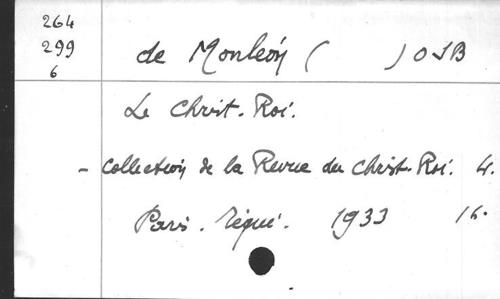 264
299
6
de Monleón ( ) OSB
Le Christ-Roi.
- Collection de la Revue du Christ-Roi. 4.
Paris. Téqui. 1933 16.